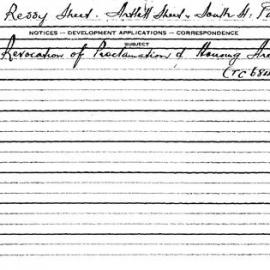 Reddy Street. Street & South St.
NOTICES — DEVELOPMENT APPLICATIONS — CORRESPONDENCE
SUBJECT
Revocation of Proclamation of Housing Are
(TC 684